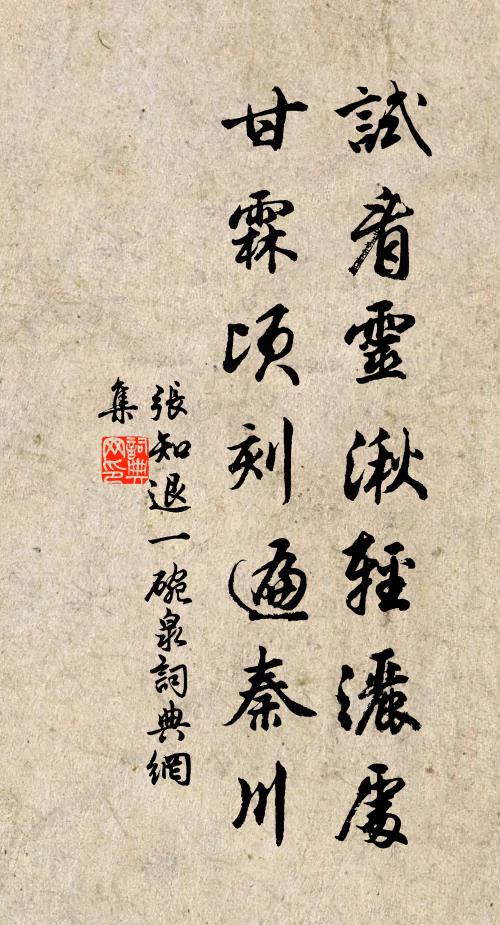 試看靈湫輕灑處
甘霖頃刻遍秦川
張知退一碗泉詞典網
集
詞典網印